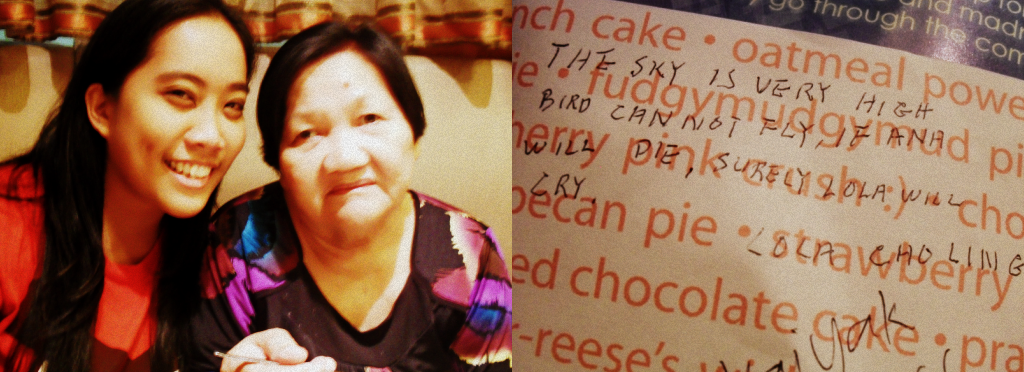 and madn
go through the com
nch cake • oatmeal powe
THE SKY IS VERY HIGH
ie • fudgymudgymud pi
BIRD CANNOT FLY, IF ANA
herry pink crush :) cho
WILL DIE, SURELY LOLA WILL
CRY.
pecan pie • strawberry
LOLA CHOLING
ed chocolate cake • pra
r-reese's